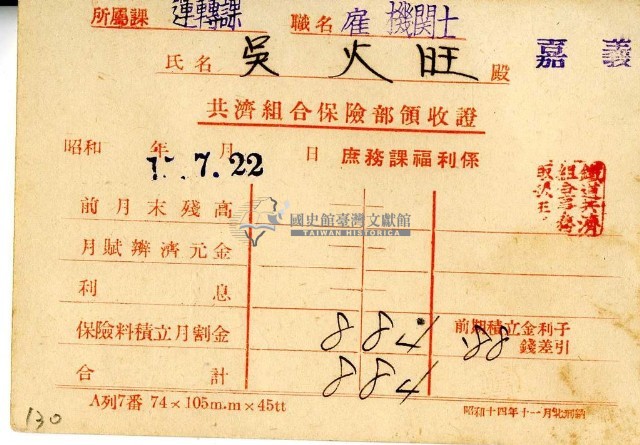 所屬課 運轉課 職名 雇 機関士
嘉義
氏名 吳火旺 殿
共濟組合保險部領收證
昭和 年 月 日 庶務課福利係
7.22
前月末殘高
國史館臺灣文獻館
TAIWAN HISTORICA
月賦辨濟元金
利息
保險料積立月割金 8 8 8
前期積立金利子
錢差引
88
合計 8 8 8
A列7番 74×105m.m×45tt
昭和十四年十一月
130